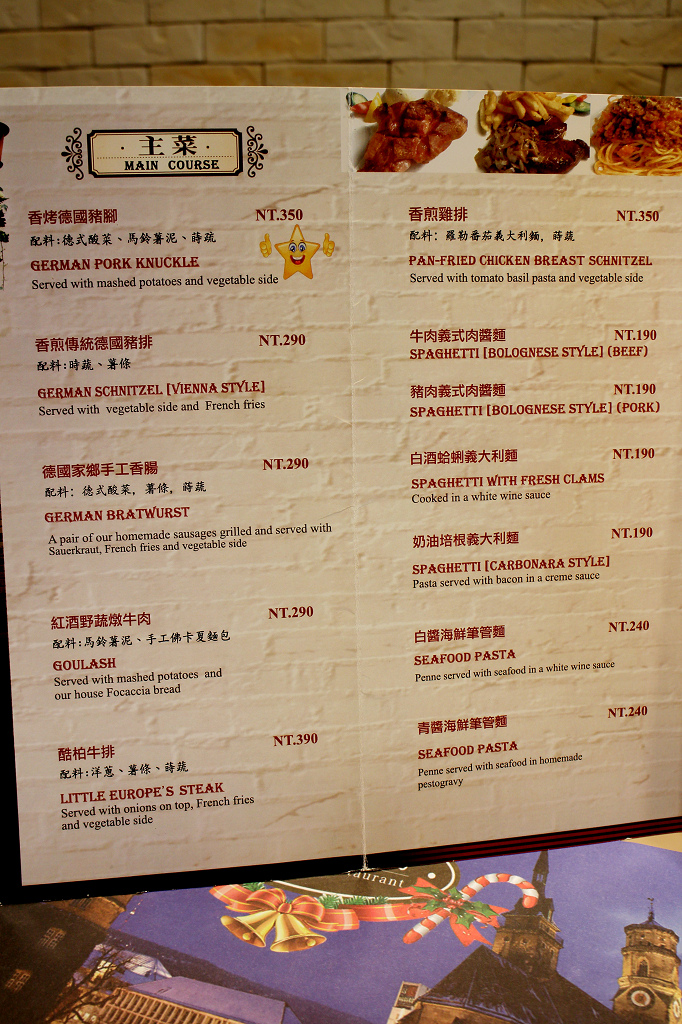 · 主菜 ·
MAIN COURSE
香烤德國豬腳 NT.350
配料:德式酸菜、馬鈴薯泥、蒔蔬
GERMAN PORK KNUCKLE
Served with mashed potatoes and vegetable side
香煎傳統德國豬排 NT.290
配料:時蔬、薯條
GERMAN SCHNITZEL [VIENNA STYLE]
Served with vegetable side and French fries
德國家鄉手工香腸 NT.290
配料: 德式酸菜, 薯條, 蒔蔬
GERMAN BRATWURST
A pair of our homemade sausages grilled and served with
Sauerkraut, French fries and vegetable side
紅酒野蔬燉牛肉 NT.290
配料:馬鈴薯泥、手工佛卡夏麵包
GOULASH
Served with mashed potatoes and
our house Focaccia bread
酷柏牛排 NT.390
配料:洋蔥、薯條、蒔蔬
LITTLE EUROPE'S STEAK
Served with onions on top, French fries
and vegetable side
香煎雞排 NT.350
配料: 羅勒番茄義大利麵, 蒔蔬
PAN-FRIED CHICKEN BREAST SCHNITZEL
Served with tomato basil pasta and vegetable side
牛肉義式肉醬麵 NT.190
SPAGHETTI [BOLOGNESE STYLE] (BEEF)
豬肉義式肉醬麵 NT.190
SPAGHETTI [BOLOGNESE STYLE] (PORK)
白酒蛤蜊義大利麵 NT.190
SPAGHETTI WITH FRESH CLAMS
Cooked in a white wine sauce
奶油培根義大利麵 NT.190
SPAGHETTI [CARBONARA STYLE]
Pasta served with bacon in a creme sauce
白醬海鮮筆管麵 NT.240
SEAFOOD PASTA
Penne served with seafood in a white wine sauce
青醬海鮮筆管麵 NT.240
SEAFOOD PASTA
Penne served with seafood in homemade
pestogravy
taurant